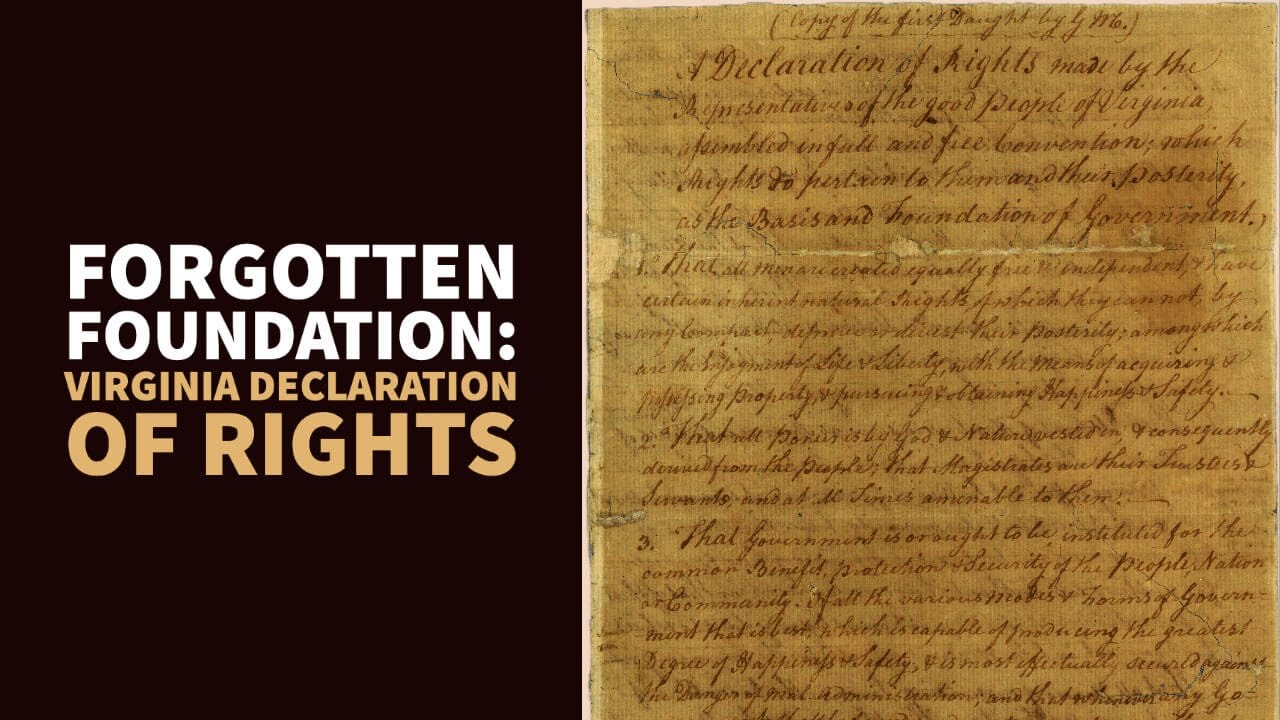 FORGOTTEN
FOUNDATION:
VIRGINIA DECLARATION
OF RIGHTS
(Copy of the first Daught by G M.)
A Declaration of Rights made by the
Representatives of the good people of Virginia,
assembled in full and free Convention; which
Rights do pertain to them and their Posterity,
as the Basis and Foundation of Government.
1. That all men are created equally free & independent, & have
certain inherent natural Rights, of which they cannot, by
any Compact, deprive or divest their Posterity; among which
are the Enjoyment of Life & Liberty, with the Means of acquiring &
possessing Property, & pursueing & obtaining Happiness & Safety.
2. That all Power is by God & Nature vested in, & consequently
derived from the People; that Magistrates are their Trustees &
Servants, and at all Times amenable to them.
3. That Government is or ought to be, instituted for the
common Benefit, protection & Security of the People, Nation
or Community. Of all the various Modes & Forms of Govern-
ment that is best, which is capable of producing the greatest
Degree of Happiness & Safety, & is most effectually secured against
the Danger of mal-administration; and that whenever any Go-